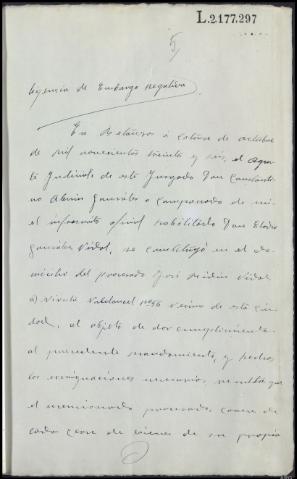 L.2.177.297
5
de Embargo negativa.
En Betanzos a catorce de octubre
de mil novecientos treinta y seis, el Agen
te Judicial de este Juzgado Don Constanti
no González, acompañado de mi
el infrascrito oficial habilitado Don Eladio
González Vidal, se constituyó en el do
micilio del procesado José Vidal
a) nº 56 vecino de esta Ciu
dad, al objeto de dar cumplimiento
al precedente mandamiento, y hechas
las necesarias, resulta que
el mencionado procesado carece de
toda clase de bienes de su propie